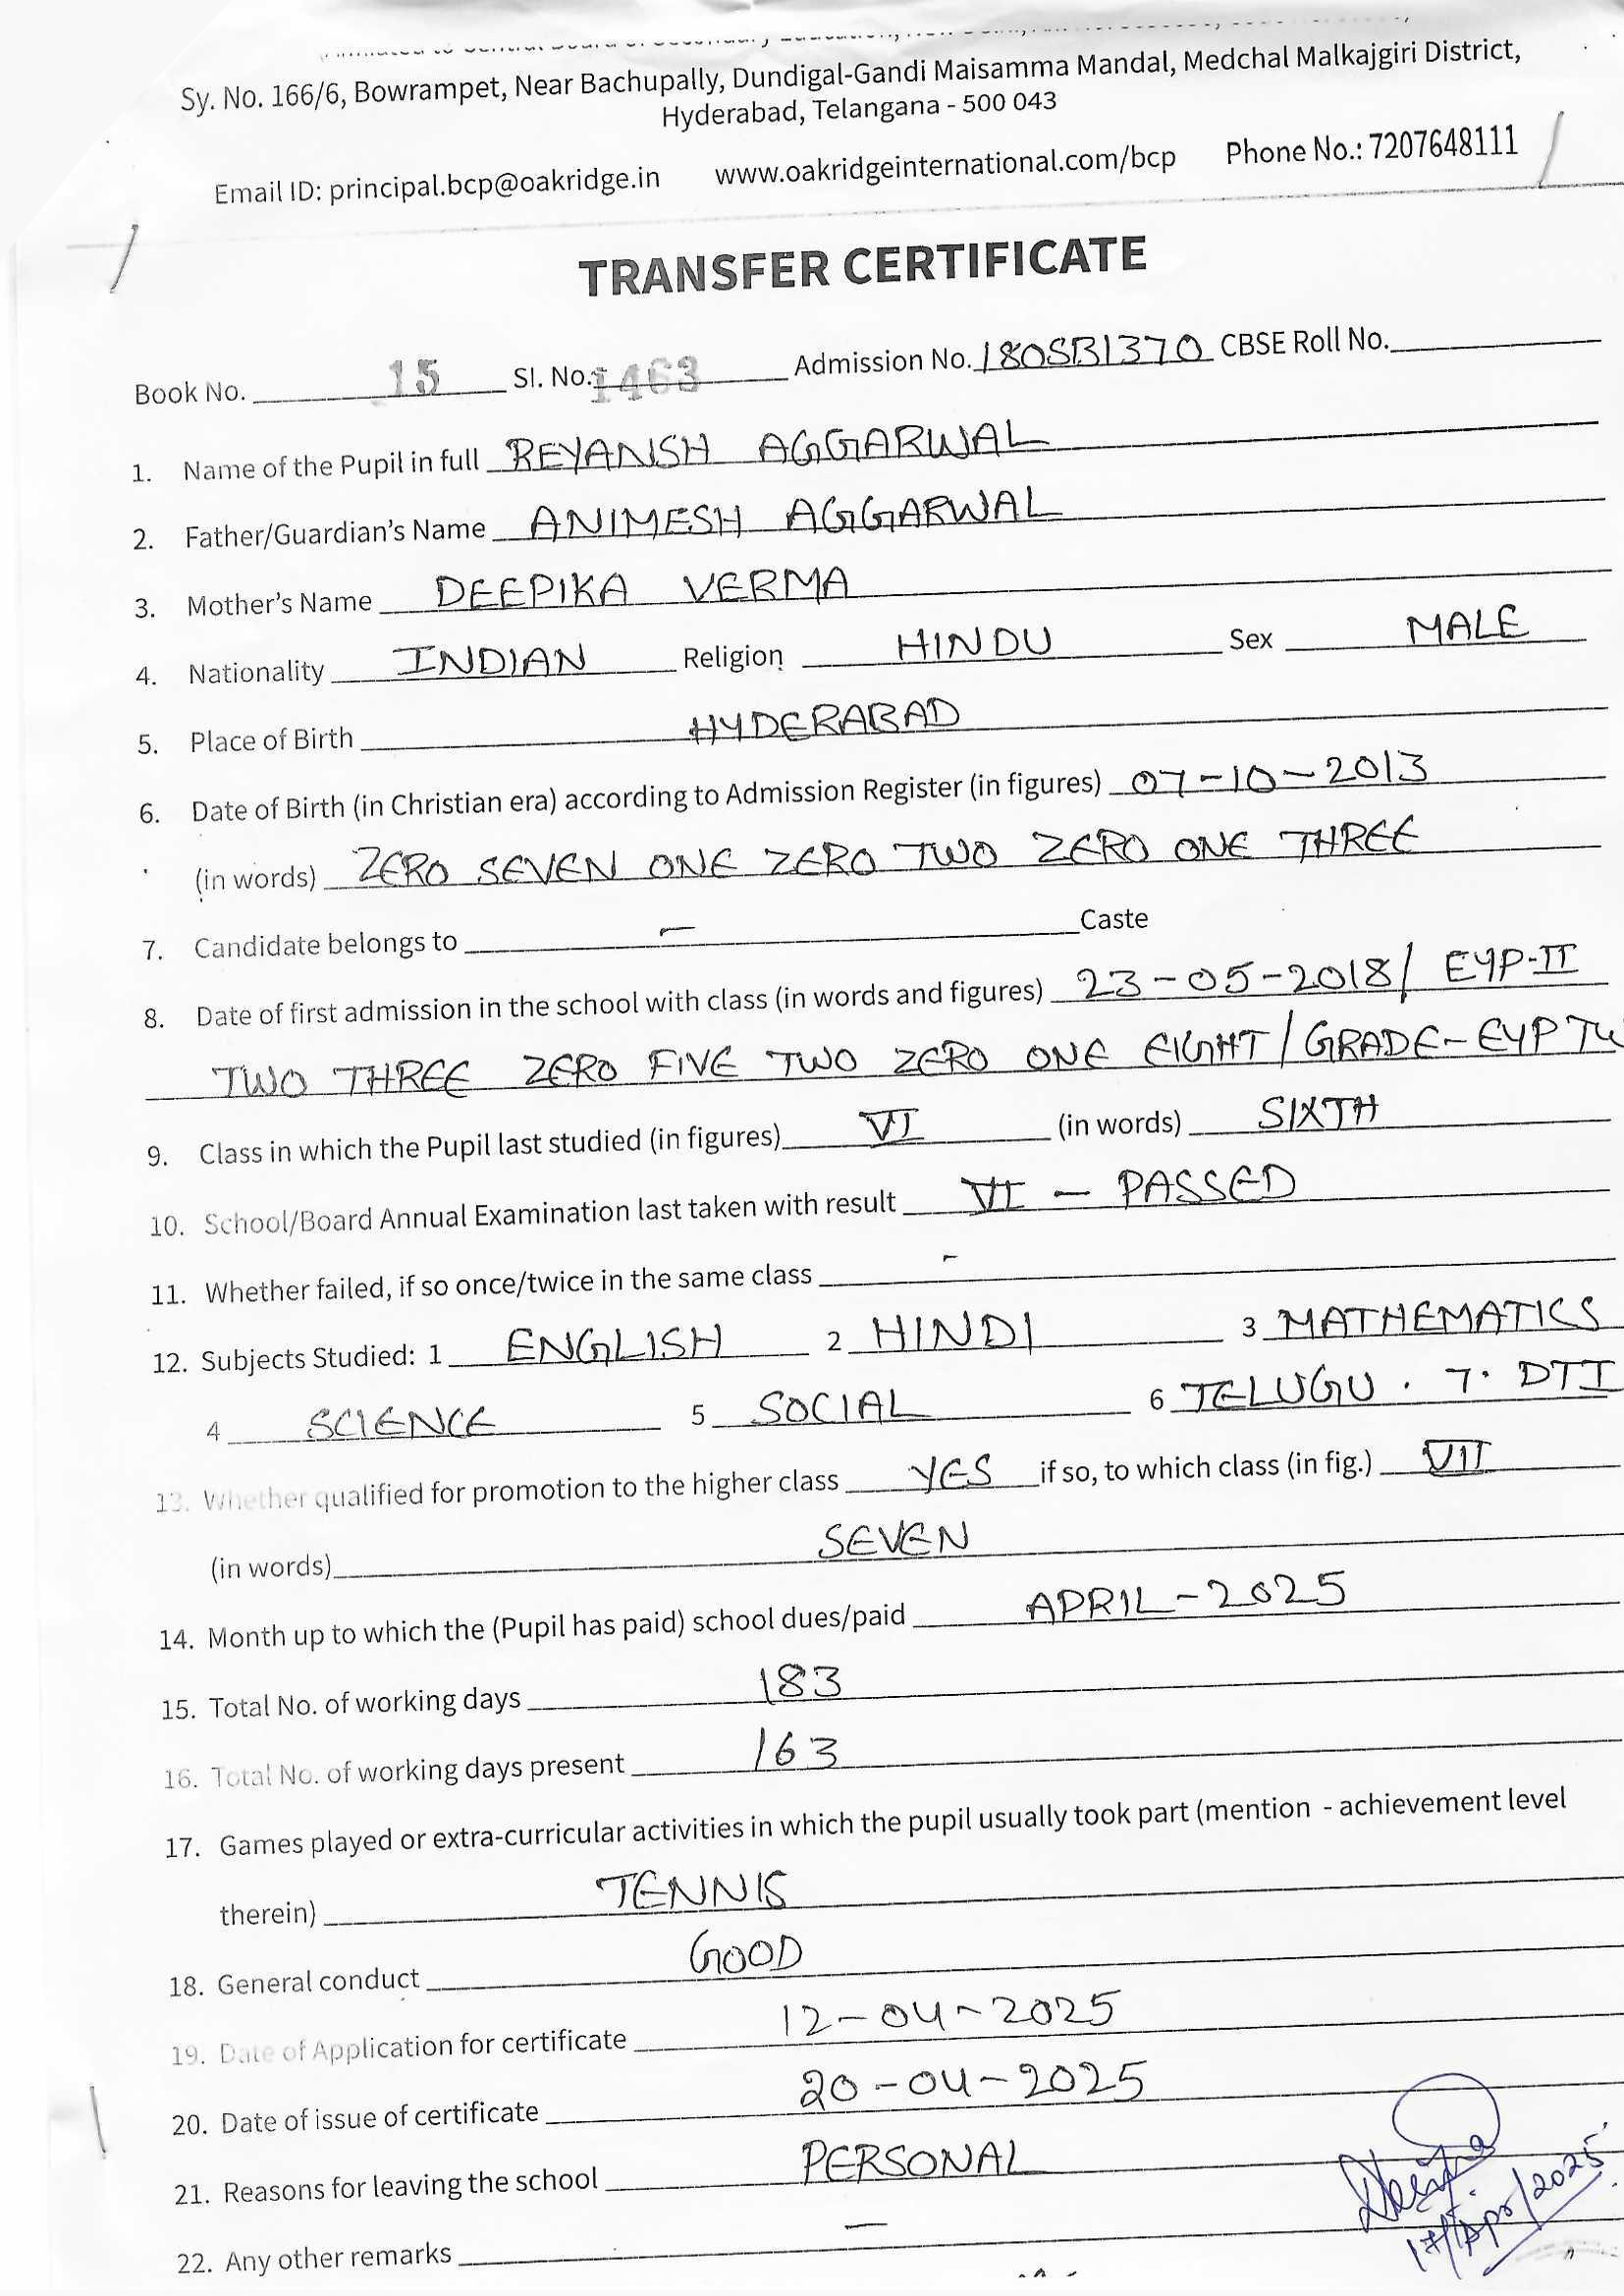 Affiliated to Central Board of Secondary Education, New Delhi,
Sy. No. 166/6, Bowrampet, Near Bachupally, Dundigal-Gandi Maisamma Mandal, Medchal Malkajgiri District,
Hyderabad, Telangana - 500 043
Email ID: principal.bcp@oakridge.in www.oakridgeinternational.com/bcp Phone No.: 7207648111
TRANSFER CERTIFICATE
Book No. 15 Sl. No. 1463 Admission No. 180SB1370 CBSE Roll No.
1. Name of the Pupil in full REYANSH AGGARWAL
2. Father/Guardian's Name ANIMESH AGGARWAL
3. Mother's Name DEEPIKA VERMA
4. Nationality INDIAN Religion HINDU Sex MALE
5. Place of Birth HYDERABAD
6. Date of Birth (in Christian era) according to Admission Register (in figures) 07-10-2013
(in words) ZERO SEVEN ONE ZERO TWO ZERO ONE THREE
7. Candidate belongs to - Caste
8. Date of first admission in the school with class (in words and figures) 23-05-2018/ EYP-II
TWO THREE ZERO FIVE TWO ZERO ONE EIGHT/GRADE-EYP
9. Class in which the Pupil last studied (in figures) VI (in words) SIXTH
10. School/Board Annual Examination last taken with result VI - PASSED
11. Whether failed, if so once/twice in the same class -
12. Subjects Studied: 1 ENGLISH 2 HINDI 3 MATHEMATICS
4 SCIENCE 5 SOCIAL 6 TELUGU . 7. DTI
13. Whether qualified for promotion to the higher class YES if so, to which class (in fig.) VII
(in words) SEVEN
14. Month up to which the (Pupil has paid) school dues/paid APRIL-2025
15. Total No. of working days 183
16. Total No. of working days present 163
17. Games played or extra-curricular activities in which the pupil usually took part (mention - achievement level
therein) TENNIS
18. General conduct GOOD
19. Date of Application for certificate 12-04-2025
20. Date of issue of certificate 20-04-2025
21. Reasons for leaving the school PERSONAL
17/Apr/2025
22. Any other remarks -